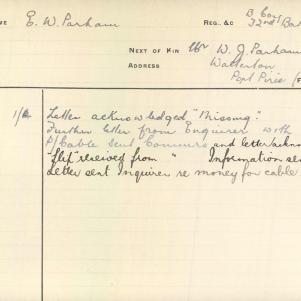 ME E. W. Parham REG., &C B Coy
32nd Bat
NEXT OF KIN Mr W. J. Parham
ADDRESS Watterton
Port Pirie (F
Letter acknowledged "Missing".
Further letter from Enquirer with
P/Cable sent Commrs and letter ackn
"Slip" received from " Information sen
Letter sent Inquirer re money for cable